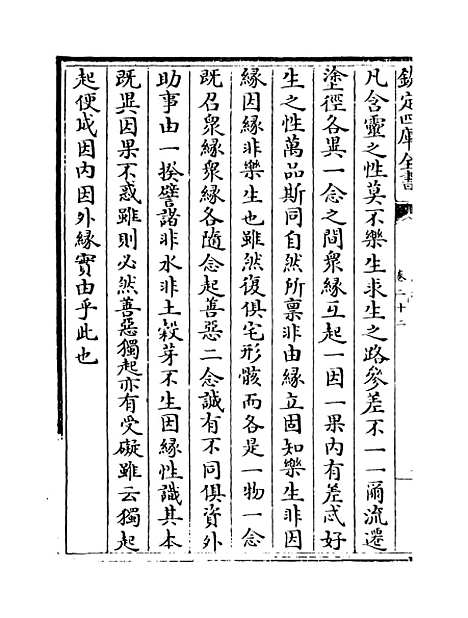 欽定四庫全書
卷二十二
凡含靈之性莫不樂生求生之路參差不一一爾流遷
塗徑各異一念之間衆緣互起一因一果内有差忒好
生之性萬品斯同自然所稟非由緣立固知樂生非因
緣因緣非樂生也雖然復俱宅形骸而各是一物一念
既召衆緣衆緣各隨念起善惡二念誠有不同俱資外
助事由一揆譬諸非水非土穀芽不生因緣性識其本
既異因果不惑雖則必然善惡獨起亦有受礙雖云獨起
起便成因内因外緣實由乎此也